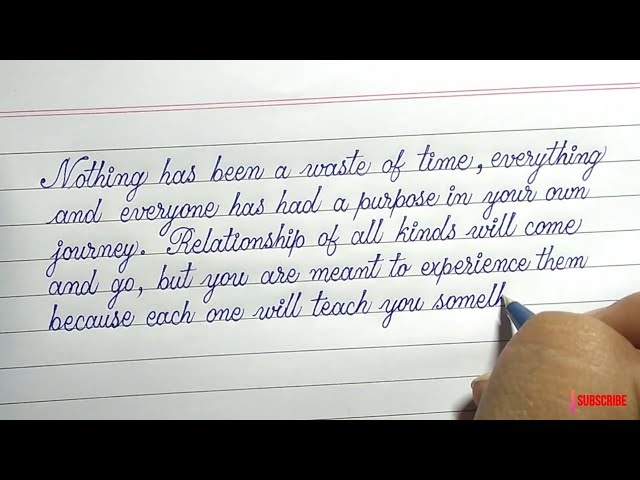 Nothing has been a waste of time, everything
and everyone has had a purpose in your own
journey. Relationship of all kinds will come
and go, but you are meant to experience them
because each one will teach you someth
SUBSCRIBE